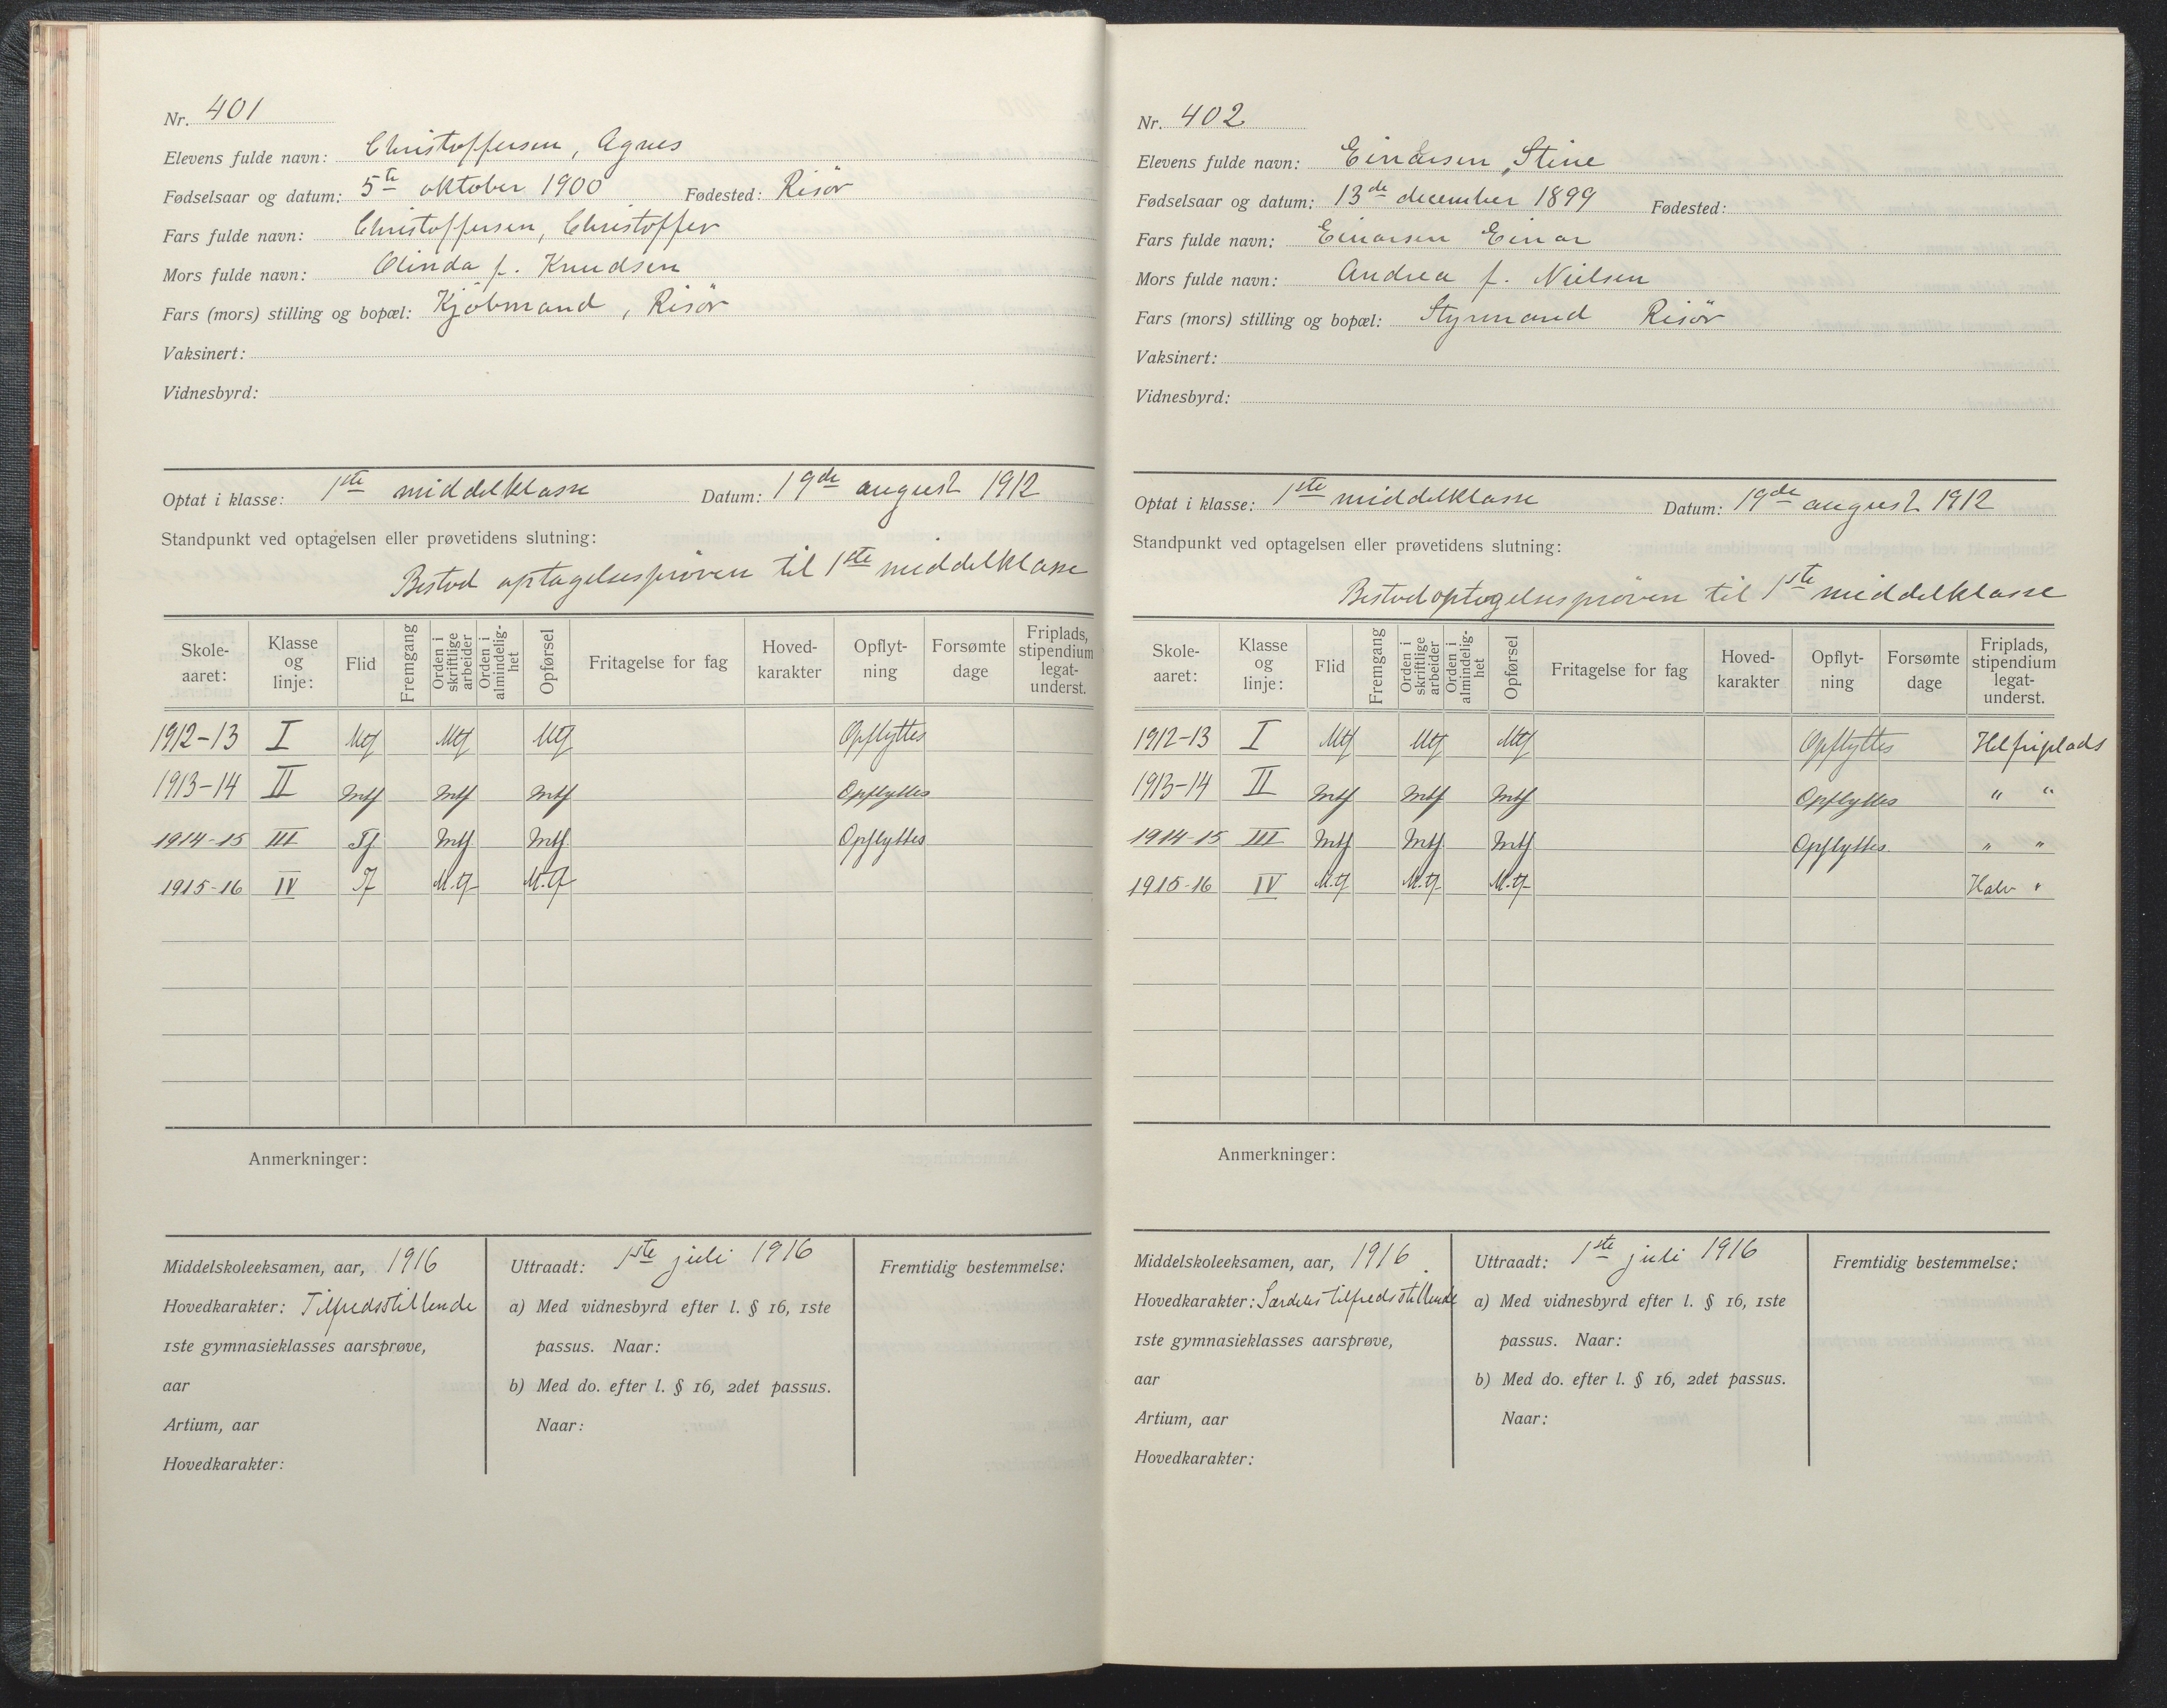 Nr. 401
Elevens fulde navn: Christoffersen, Agnes
Fødselsaar og datum: 5te oktober 1900 Fødested: Risör
Fars fulde navn: Christoffersen, Christoffer
Mors fulde navn: Olinda f. Knudsen
Fars (mors) stilling og bopæl: Kjöbmand, Risör
Vaksinert:
Vidnesbyrd:
Optat i klasse: 1ste middelklasse Datum: 19de august 1912
Standpunkt ved optagelsen eller prøvetidens slutning:
Bestod optagelsespröven til 1ste middelklasse
Skole-aaret: Klasse og linje: Flid Fremgang Orden i skriftlige arbeider Orden i almindelig-het Opførsel Fritagelse for fag Hoved-karakter Opflyt-ning Forsømte dage Friplads, stipendium legat-underst.
1912-13 I Mtf Mtf Mtf Opflyttes
1913-14 II Mtf Mtf Mtf Opflyttes
1914-15 III Tf Mtf Mtf Opflyttes
1915-16 IV Tf M.tf M.tf
Anmerkninger:
Middelskoleeksamen, aar, 1916
Hovedkarakter: Tilfredsstillende
1ste gymnasieklasses aarsprøve,
aar
Artium, aar
Hovedkarakter:
Uttraadt: 1ste juli 1916
a) Med vidnesbyrd efter l. § 16, 1ste
passus. Naar:
b) Med do. efter l. § 16, 2det passus.
Naar:
Fremtidig bestemmelse:
Nr. 402
Elevens fulde navn: Einarsen, Stine
Fødselsaar og datum: 13de december 1899 Fødested:
Fars fulde navn: Einarsen Einar
Mors fulde navn: Andrea f. Nielsen
Fars (mors) stilling og bopæl: Styrmand Risör
Vaksinert:
Vidnesbyrd:
Optat i klasse: 1ste middelklasse Datum: 19de august 1912
Standpunkt ved optagelsen eller prøvetidens slutning:
Bestod optagelsespröven til 1ste middelklasse
Skole-aaret: Klasse og linje: Flid Fremgang Orden i skriftlige arbeider Orden i almindelig-het Opførsel Fritagelse for fag Hoved-karakter Opflyt-ning Forsømte dage Friplads, stipendium legat-underst.
1912-13 I Mtf Mtf Mtf Opflyttes Hel friplads
1913-14 II Mtf Mtf Mtf Opflyttes " "
1914-15 III Mtf Mtf Mtf Opflyttes " "
1915-16 IV M.tf M.tf M.tf Halv "
Anmerkninger:
Middelskoleeksamen, aar, 1916.
Hovedkarakter: Særdeles tilfredsstillende
1ste gymnasieklasses aarsprøve,
aar
Artium, aar
Hovedkarakter:
Uttraadt: 1ste juli 1916
a) Med vidnesbyrd efter l. § 16, 1ste
passus. Naar:
b) Med do. efter l. § 16, 2det passus.
Naar:
Fremtidig bestemmelse: